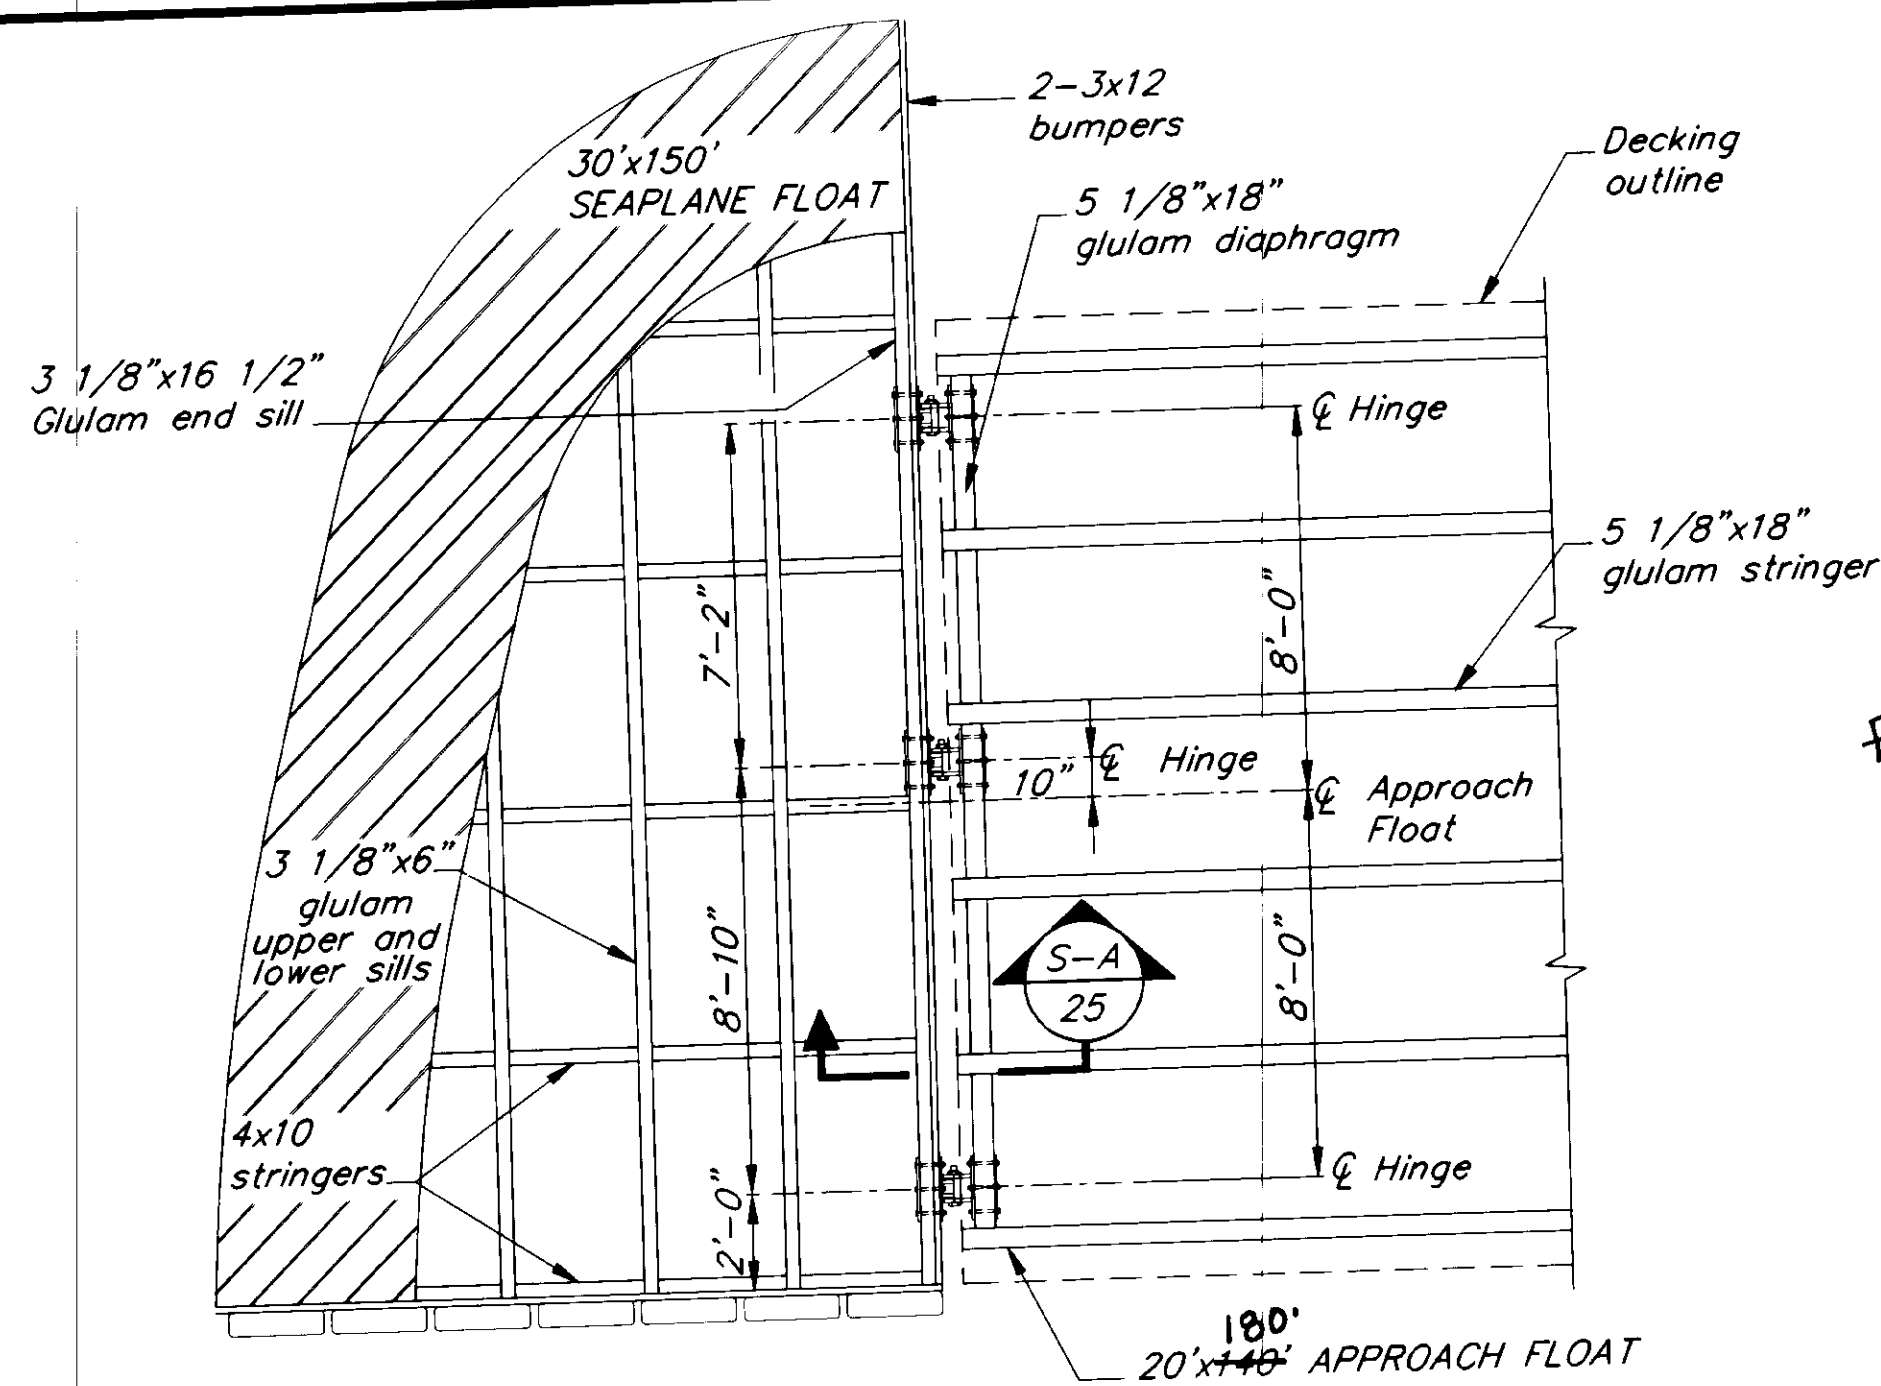 2-3x12
bumpers
Decking
outline
30'x150'
SEAPLANE FLOAT
5 1/8"x18"
glulam diaphragm
3 1/8"x16 1/2"
Glulam end sill
℄ Hinge
5 1/8"x18"
glulam stringer
7'-2"
8'-0"
℄ Hinge
10"
℄ Approach
Float
3 1/8"x6"
glulam
upper and
lower sills
8'-10"
8'-0"
S-A
25
4x10
stringers
℄ Hinge
2'-0"
180'
20'x140' APPROACH FLOAT